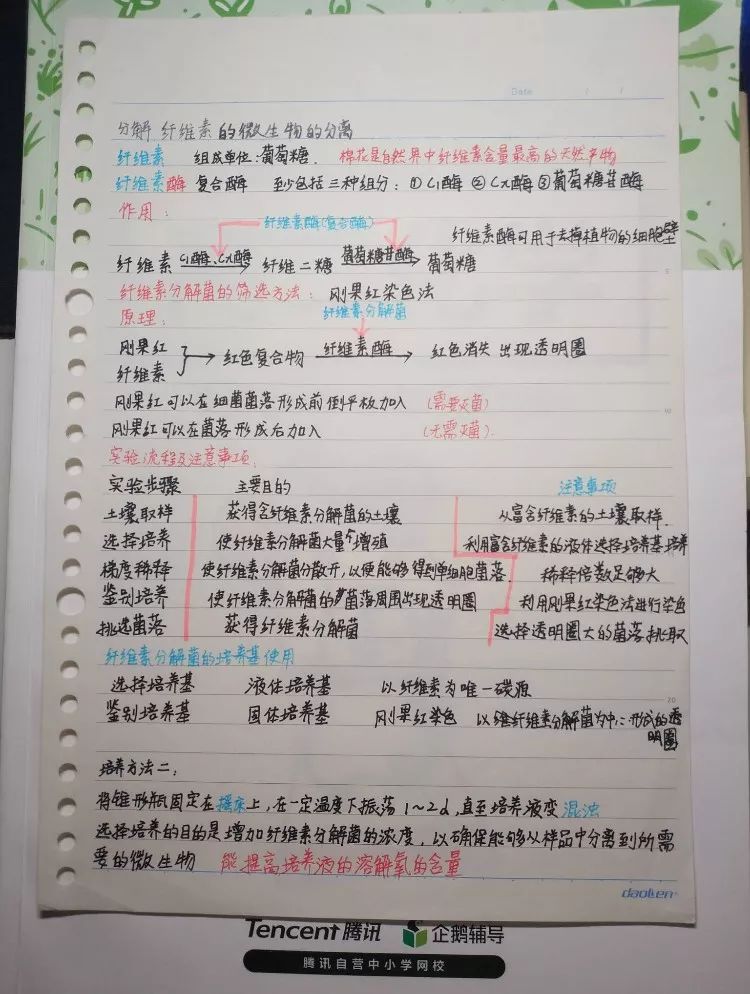 Date / /
分解纤维素的微生物的分离
纤维素 组成单位:葡萄糖. 棉花是自然界中纤维素含量最高的天然产物
纤维素酶 复合酶 至少包括三种组分:①C₁酶 ②Cx酶 ③葡萄糖苷酶
作用:
纤维素酶(复合酶)
纤维素酶可用于去掉植物的细胞壁
纤维素 C₁酶、Cx酶 纤维二糖 葡萄糖苷酶 葡萄糖
纤维素分解菌的筛选方法: 刚果红染色法
原理: 纤维素分解菌
刚果红
纤维素 → 红色复合物 纤维素酶 → 红色消失 出现透明圈
刚果红可以在细菌菌落形成前倒平板加入 (需要灭菌)
刚果红可以在菌落形成后加入 (无需灭菌).
实验流程及注意事项:
实验步骤 主要目的 注意事项
土壤取样 获得含纤维素分解菌的土壤 从富含纤维素的土壤取样.
选择培养 使纤维素分解菌大量个增殖 利用富含纤维素的液体选择培养基培养
梯度稀释 使纤维素分解菌分散开,以便能够得到单细胞菌落. 稀释倍数足够大
鉴别培养 使纤维素分解菌的菌落周围出现透明圈 利用刚果红染色法进行染色
挑选菌落 获得纤维素分解菌 选择透明圈大的菌落挑取
纤维素分解菌的培养基使用
选择培养基 液体培养基 以纤维素为唯一碳源
鉴别培养基 固体培养基 刚果红染色 以纤维素分解菌为中心形成的透
明圈
培养方法二:
将锥形瓶固定在摇床上,在一定温度下振荡1~2d,直至培养液变混浊
选择培养的目的是增加纤维素分解菌的浓度,以确保能够从样品中分离到所需
要的微生物 能提高培养液的溶解氧的含量
daolien
Tencent 腾讯 企鹅辅导
腾讯自营中小学网校